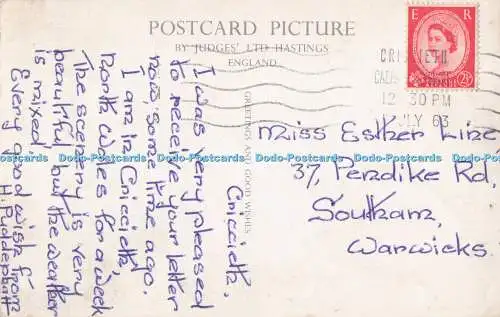 POSTCARD PICTURE
BY JUDGES' LTD HASTINGS
ENGLAND
GREETINGS AND GOOD WISHES
E R
2½D
CRICCIETH
12 30 PM
JLY 63
Criccieth.
I was very pleased
to receive your letter
now, some time ago.
I am in Criccieth,
North Wales for a week
The scenery is very
beautiful, but the weather
is mixed,
Every good wish from
H. Puddephatt
Miss Esther
37, Pendike Rd,
Southam,
Warwicks.
Dodo-Postcards Dodo-Postcards Dodo-Postcards Dodo-Postcards Dodo-Postcards